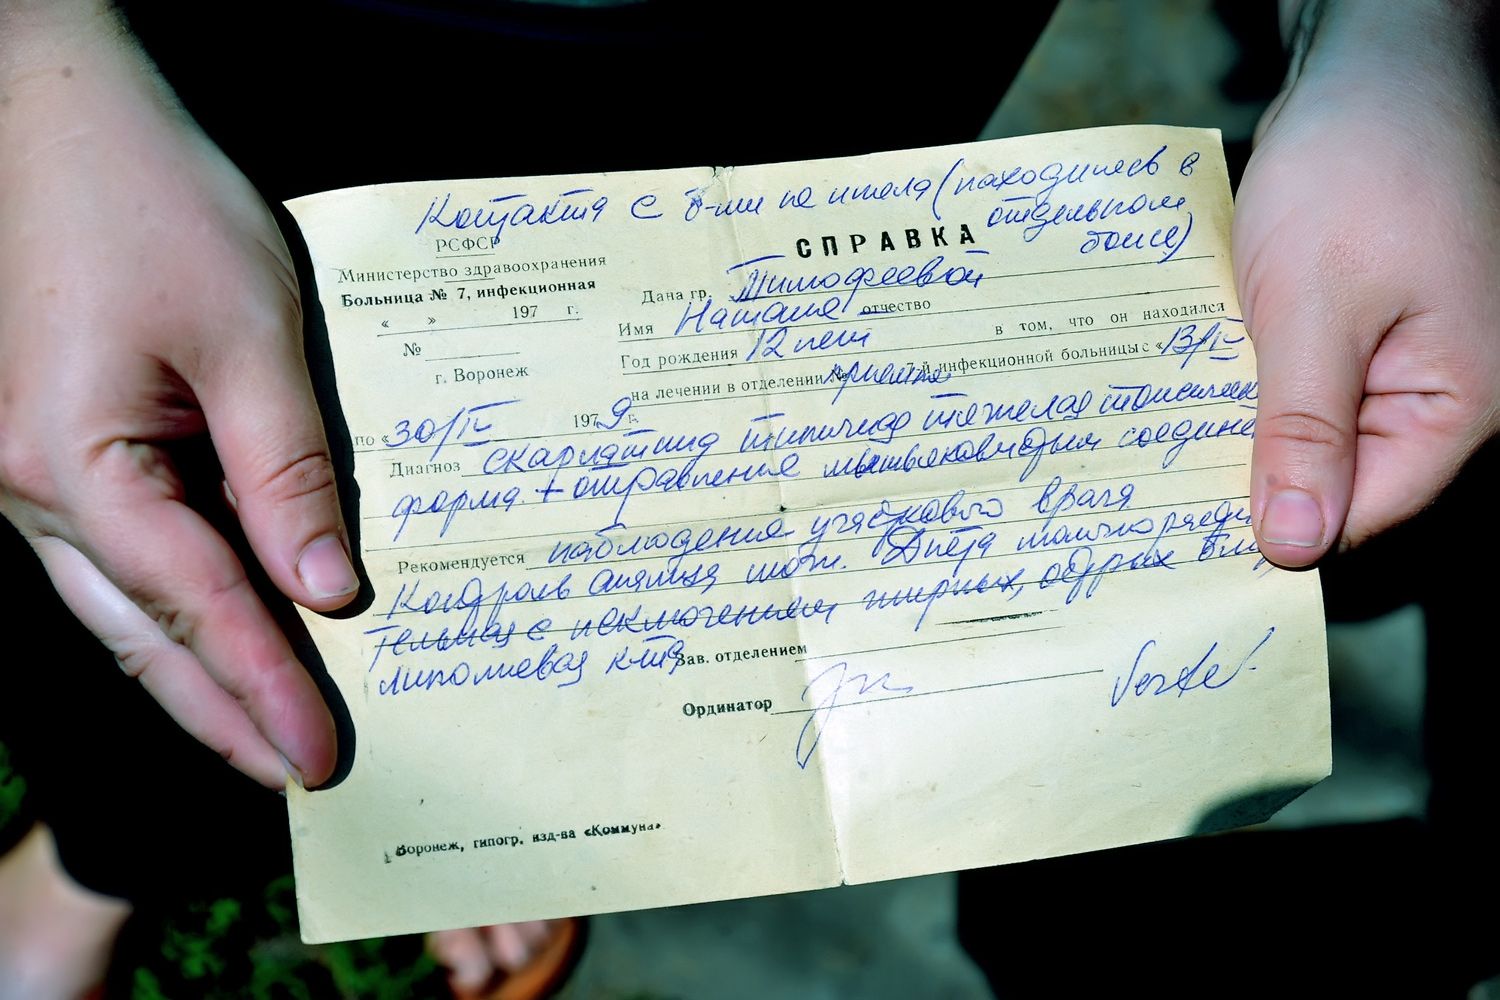 Контакта с б-ми не имела (находилась в
отдельном
боксе)
РСФСР
Министерство здравоохранения
Больница № 7, инфекционная
« » 197 г.
№
г. Воронеж
СПРАВКА
Дана гр. Тимофеевой
Имя Наташе отчество
Год рождения 12 лет в том, что он находился
на лечении в отделении № 7-й инфекционной больницы с «13/IV
по «30/IV 1979 г.
Диагноз скарлатина типичная тяжелая токсическ
форма + отравление мышьяковидным соедине
Рекомендуется наблюдение участкового врача
Контроль анализа мочи. Диета молочнорасти
тельная с исключением жирных, острых блю
Зав. отделением
Ординатор
Воронеж, типогр. изд-ва «Коммуна»